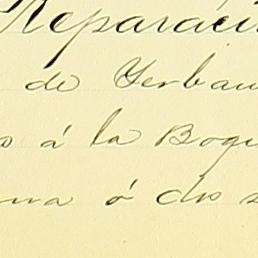 Reparaci
de Yerbau
s á la Boqu
una ó dos s